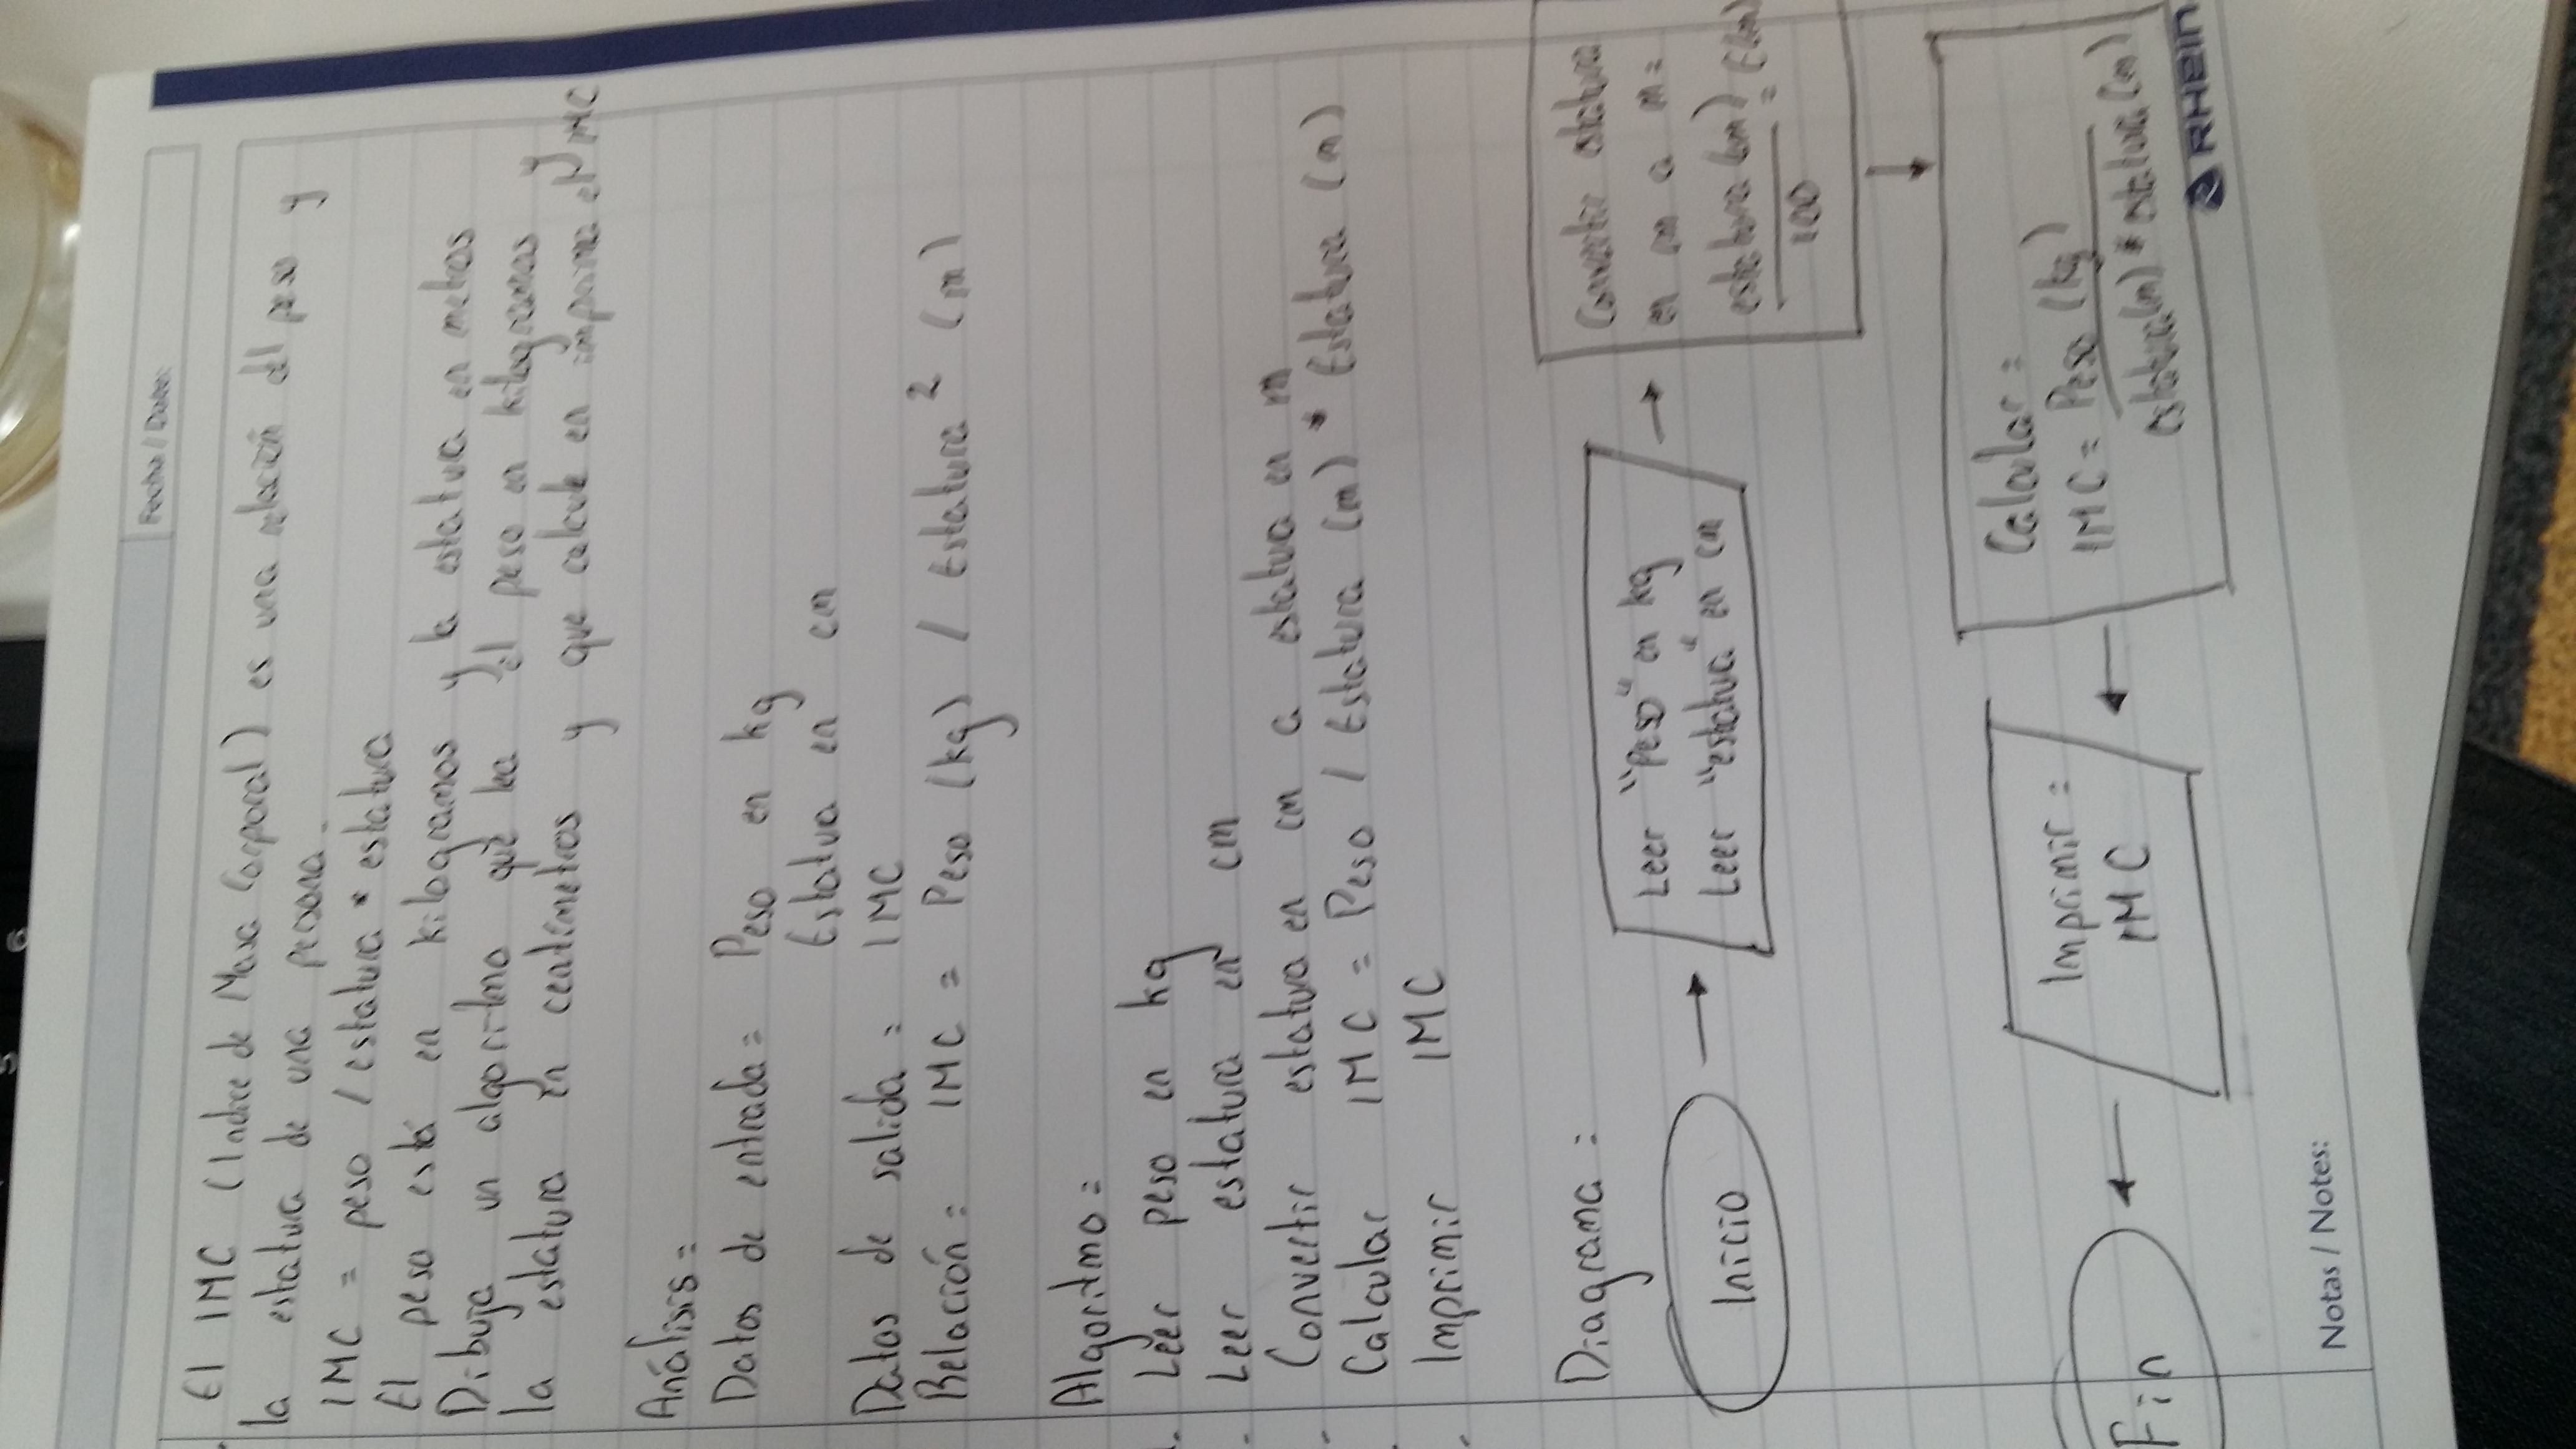 Fecha / Date:
El IMC (Indice de Masa Corporal) es una relación del peso y
la estatura de una persona.
IMC = peso / estatura * estatura
El peso está en kilogramos y la estatura en metros
Dibuja un algoritmo que lea el peso en kilogramos y
la estatura en centímetros y que calcule en imprima el IMC
Análisis =
Datos de entrada = Peso en kg
Estatura en cm
Datos de salida = IMC
Relación = IMC = Peso (kg) / Estatura ² (m)
Algoritmo =
Leer peso en kg
Leer estatura en cm
Convertir estatura en cm a estatura en m
Calcular IMC = Peso / Estatura (m) * Estatura (m)
Imprimir IMC
Diagrama =
Inicio
Leer "peso" en kg
Leer "estatura" en cm
Convertir estatura
en cm a m =
estatura (cm) = E(m)
100
Calcular =
IMC = Peso (kg)
estatura(m) * estatura (m)
Imprimir =
IMC
Fin
Notas / Notes:
RHEIN